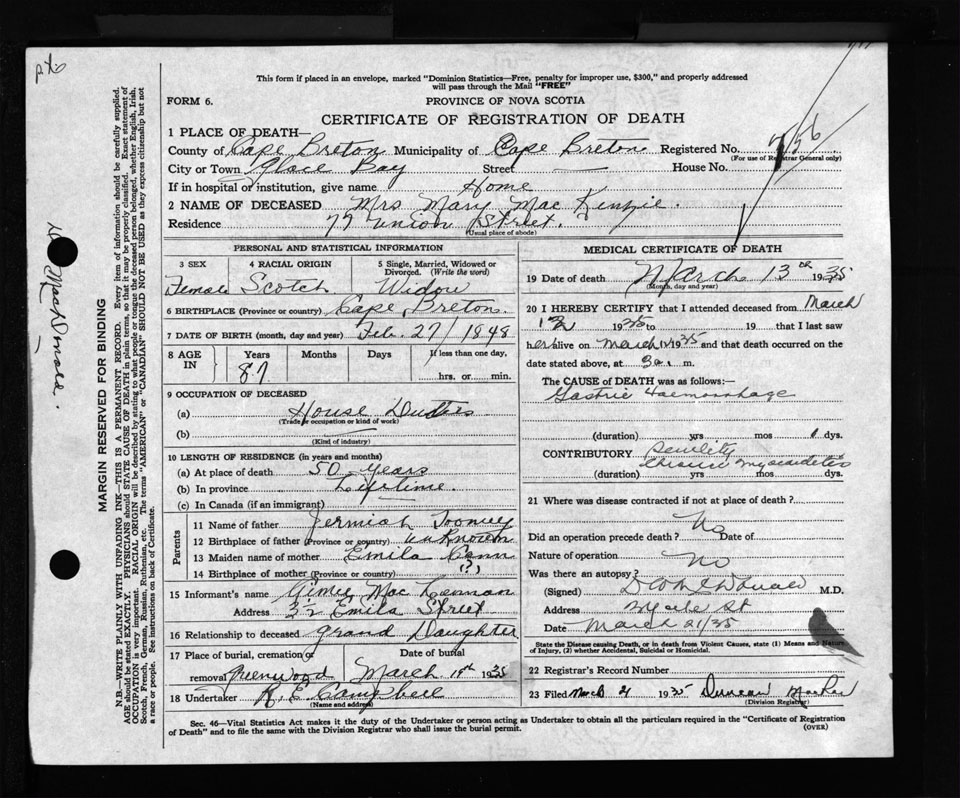 This form if placed in an envelope, marked "Dominion Statistics—Free, penalty for improper use, $300," and properly addressed
will pass through the Mail "FREE"
FORM 6.
PROVINCE OF NOVA SCOTIA
CERTIFICATE OF REGISTRATION OF DEATH
1 PLACE OF DEATH—
County of Cape Breton Municipality of Cape Breton Registered No.
(For use of Registrar General only)
City or Town Glace Bay Street House No.
If in hospital or institution, give name Home
2 NAME OF DECEASED Mrs Mary Mac Kenzie.
Residence 77 Union Street.
(Usual place of abode)
PERSONAL AND STATISTICAL INFORMATION
3 SEX 4 RACIAL ORIGIN 5 Single, Married, Widowed or
Divorced. (Write the word)
Female Scotch Widow
6 BIRTHPLACE (Province or country) Cape Breton
7 DATE OF BIRTH (month, day and year) Feb. 27/1848
8 AGE IN Years Months Days If less than one day,
87 hrs. or min.
9 OCCUPATION OF DECEASED
(a) House Duties
(Trade or occupation or kind of work)
(b)
(Kind of industry)
10 LENGTH OF RESIDENCE (in years and months)
(a) At place of death 50 years
(b) In province Lifetime.
(c) In Canada (if an immigrant)
Parents
11 Name of father Jermiah Toomey
12 Birthplace of father (Province or country) unKnown
13 Maiden name of mother Emila
14 Birthplace of mother (Province or country) (?)
15 Informant's name Aimee Mac Lennan
Address 32 Emila Street
16 Relationship to deceased Grand Daughter
17 Place of burial, cremation or Date of burial
removal Greenwood March 1935
18 Undertaker R. E. Campbell
(Name and address)
MEDICAL CERTIFICATE OF DEATH
19 Date of death March 13 1935
(Month, day and year)
20 I HEREBY CERTIFY that I attended deceased from March
1935 to 19 that I last saw
her alive on March 1935 and that death occurred on the
date stated above, at 3 a. m.
The CAUSE of DEATH was as follows:—
Gastric Haemorrhage
(duration) yrs mos 1 dys.
CONTRIBUTORY Senility
Chronic myocarditis
(duration) yrs mos dys.
21 Where was disease contracted if not at place of death?
Did an operation precede death? No Date of
Nature of operation
Was there an autopsy? No
(Signed) M.D.
Address
Date March 21/35
State the Disease causing Death, or in death from Violent Causes, state (1) Means and Nature
of Injury, (2) whether Accidental, Suicidal or Homicidal.
22 Registrar's Record Number
23 Filed March 21 1935 Duncan
(Division Registrar)
Sec. 46—Vital Statistics Act makes it the duty of the Undertaker or person acting as Undertaker to obtain all the particulars required in the "Certificate of Registration
of Death" and to file the same with the Division Registrar who shall issue the burial permit.
(OVER)
MARGIN RESERVED FOR BINDING
N.B.—WRITE PLAINLY WITH UNFADING INK—THIS IS A PERMANENT RECORD. Every item of information should be carefully supplied.
AGE should be stated EXACTLY. PHYSICIANS should STATE CAUSE OF DEATH in plain terms, so that it may be properly classified. Exact statement of
OCCUPATION is very important. RACIAL ORIGIN will be described by stating to what people or tongue the deceased person belonged, whether English, Irish,
Scotch, French, German, Russian, Ruthenian, etc. The terms "AMERICAN" or "CANADIAN" SHOULD NOT BE USED as they express citizenship but not
a race or people. See instructions on back of Certificate.